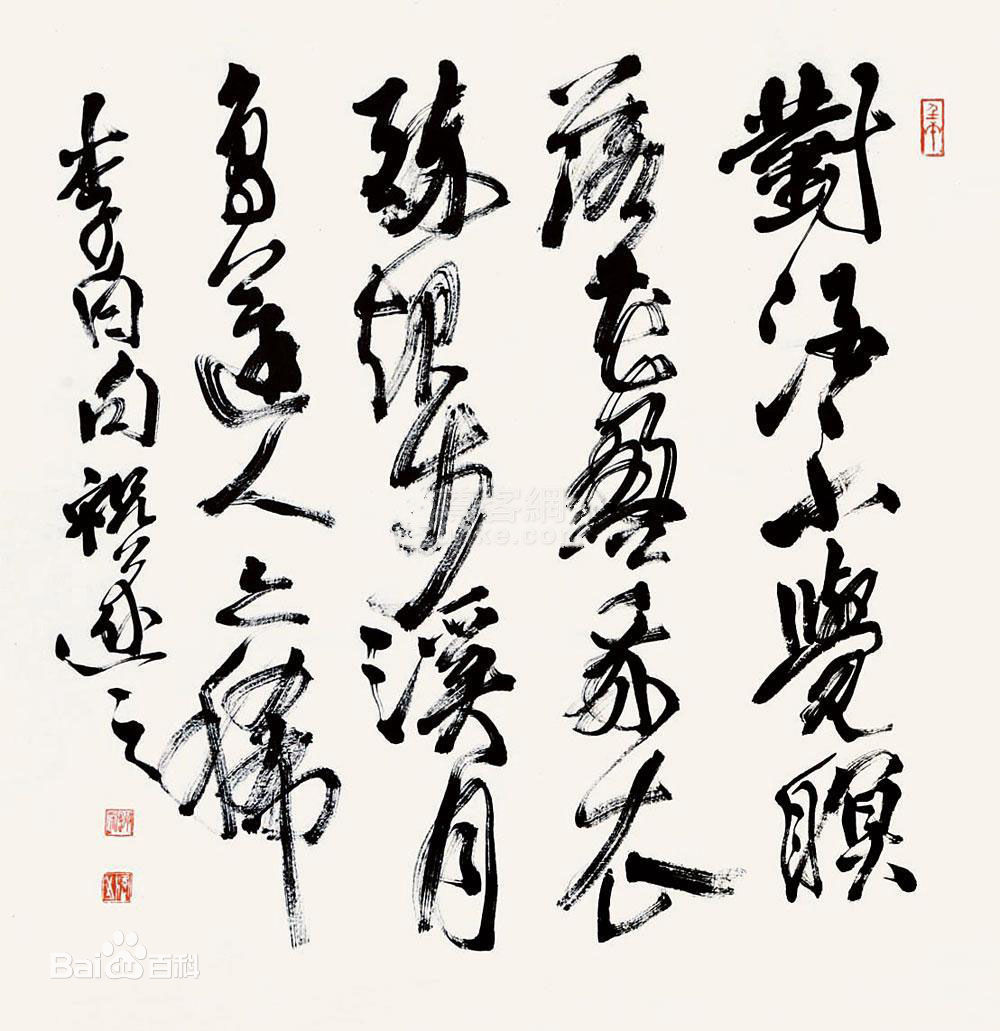 對酒不覺瞑
落花盈我衣
醉起步溪月
鳥還人亦稀
李白句祝遂之
Bai百科